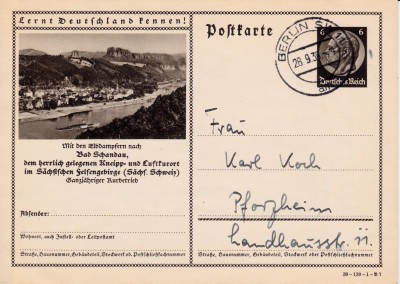 Lernt Deutschland kennen!
Postkarte
BERLIN SW
28.9.3
6 6
Deutsches Reich
Mit den Elbdampfern nach
Bad Schandau,
dem herrlich gelegenen Kneipp- und Luftkurort
im Sächsischen Felsengebirge (Sächs. Schweiz)
Ganzjähriger Kurbetrieb
Absender:
Wohnort, auch Zustell- oder Leitpostamt
Straße, Hausnummer, Gebäudeteil, Stockwerk od. Postschließfachnummer
Frau
Karl Koch
Pforzheim
Landhausstr. 11.
Straße, Hausnummer, Gebäudeteil, Stockwerk oder Postschließfachnummer